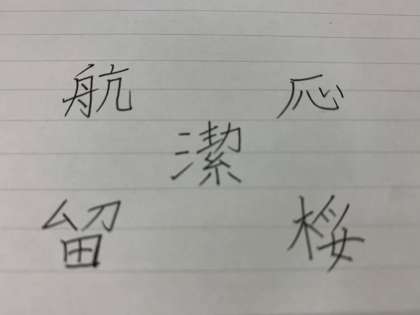 航 応
潔
留 桜